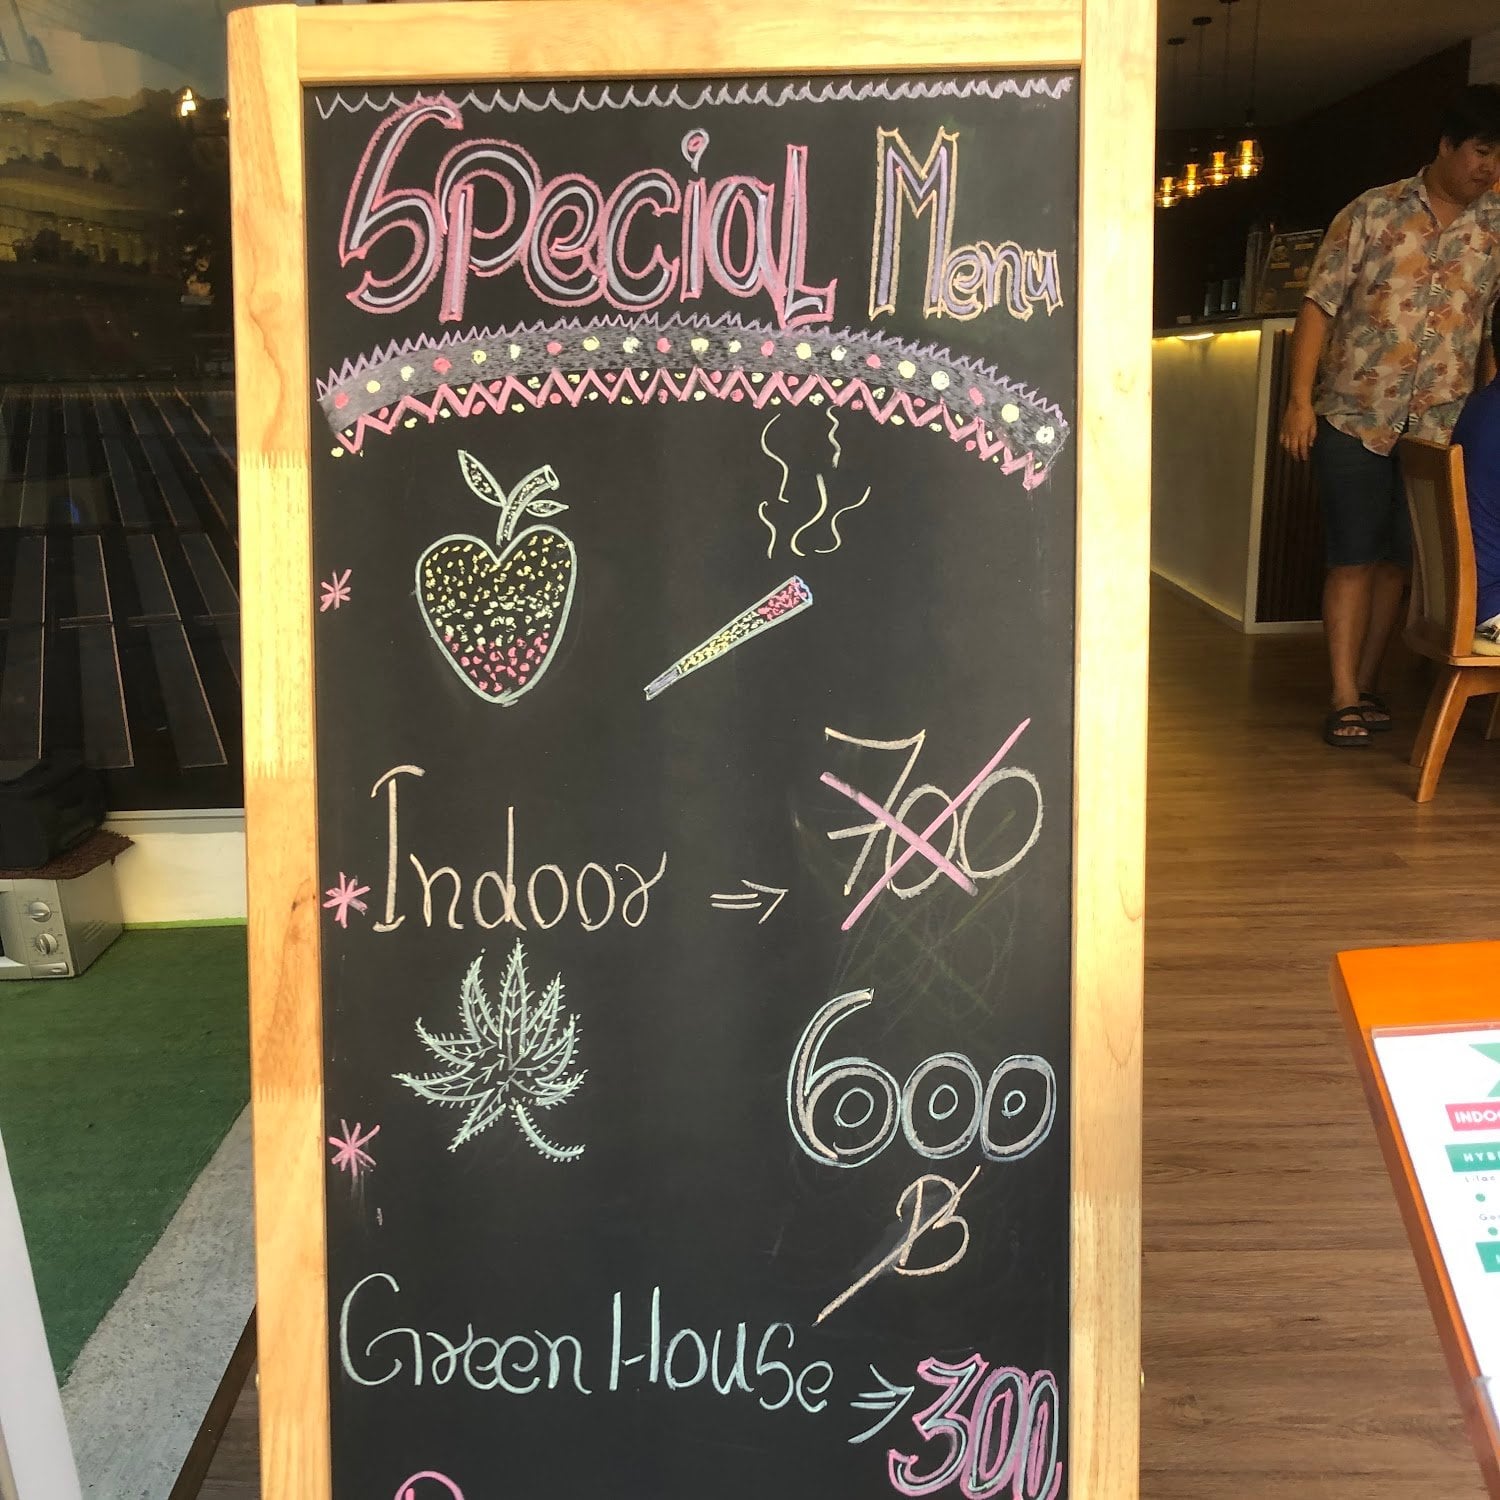 Special Menu
Indoor ⇒ 700
600
฿
Green House ⇒ 300
INDO
HYB